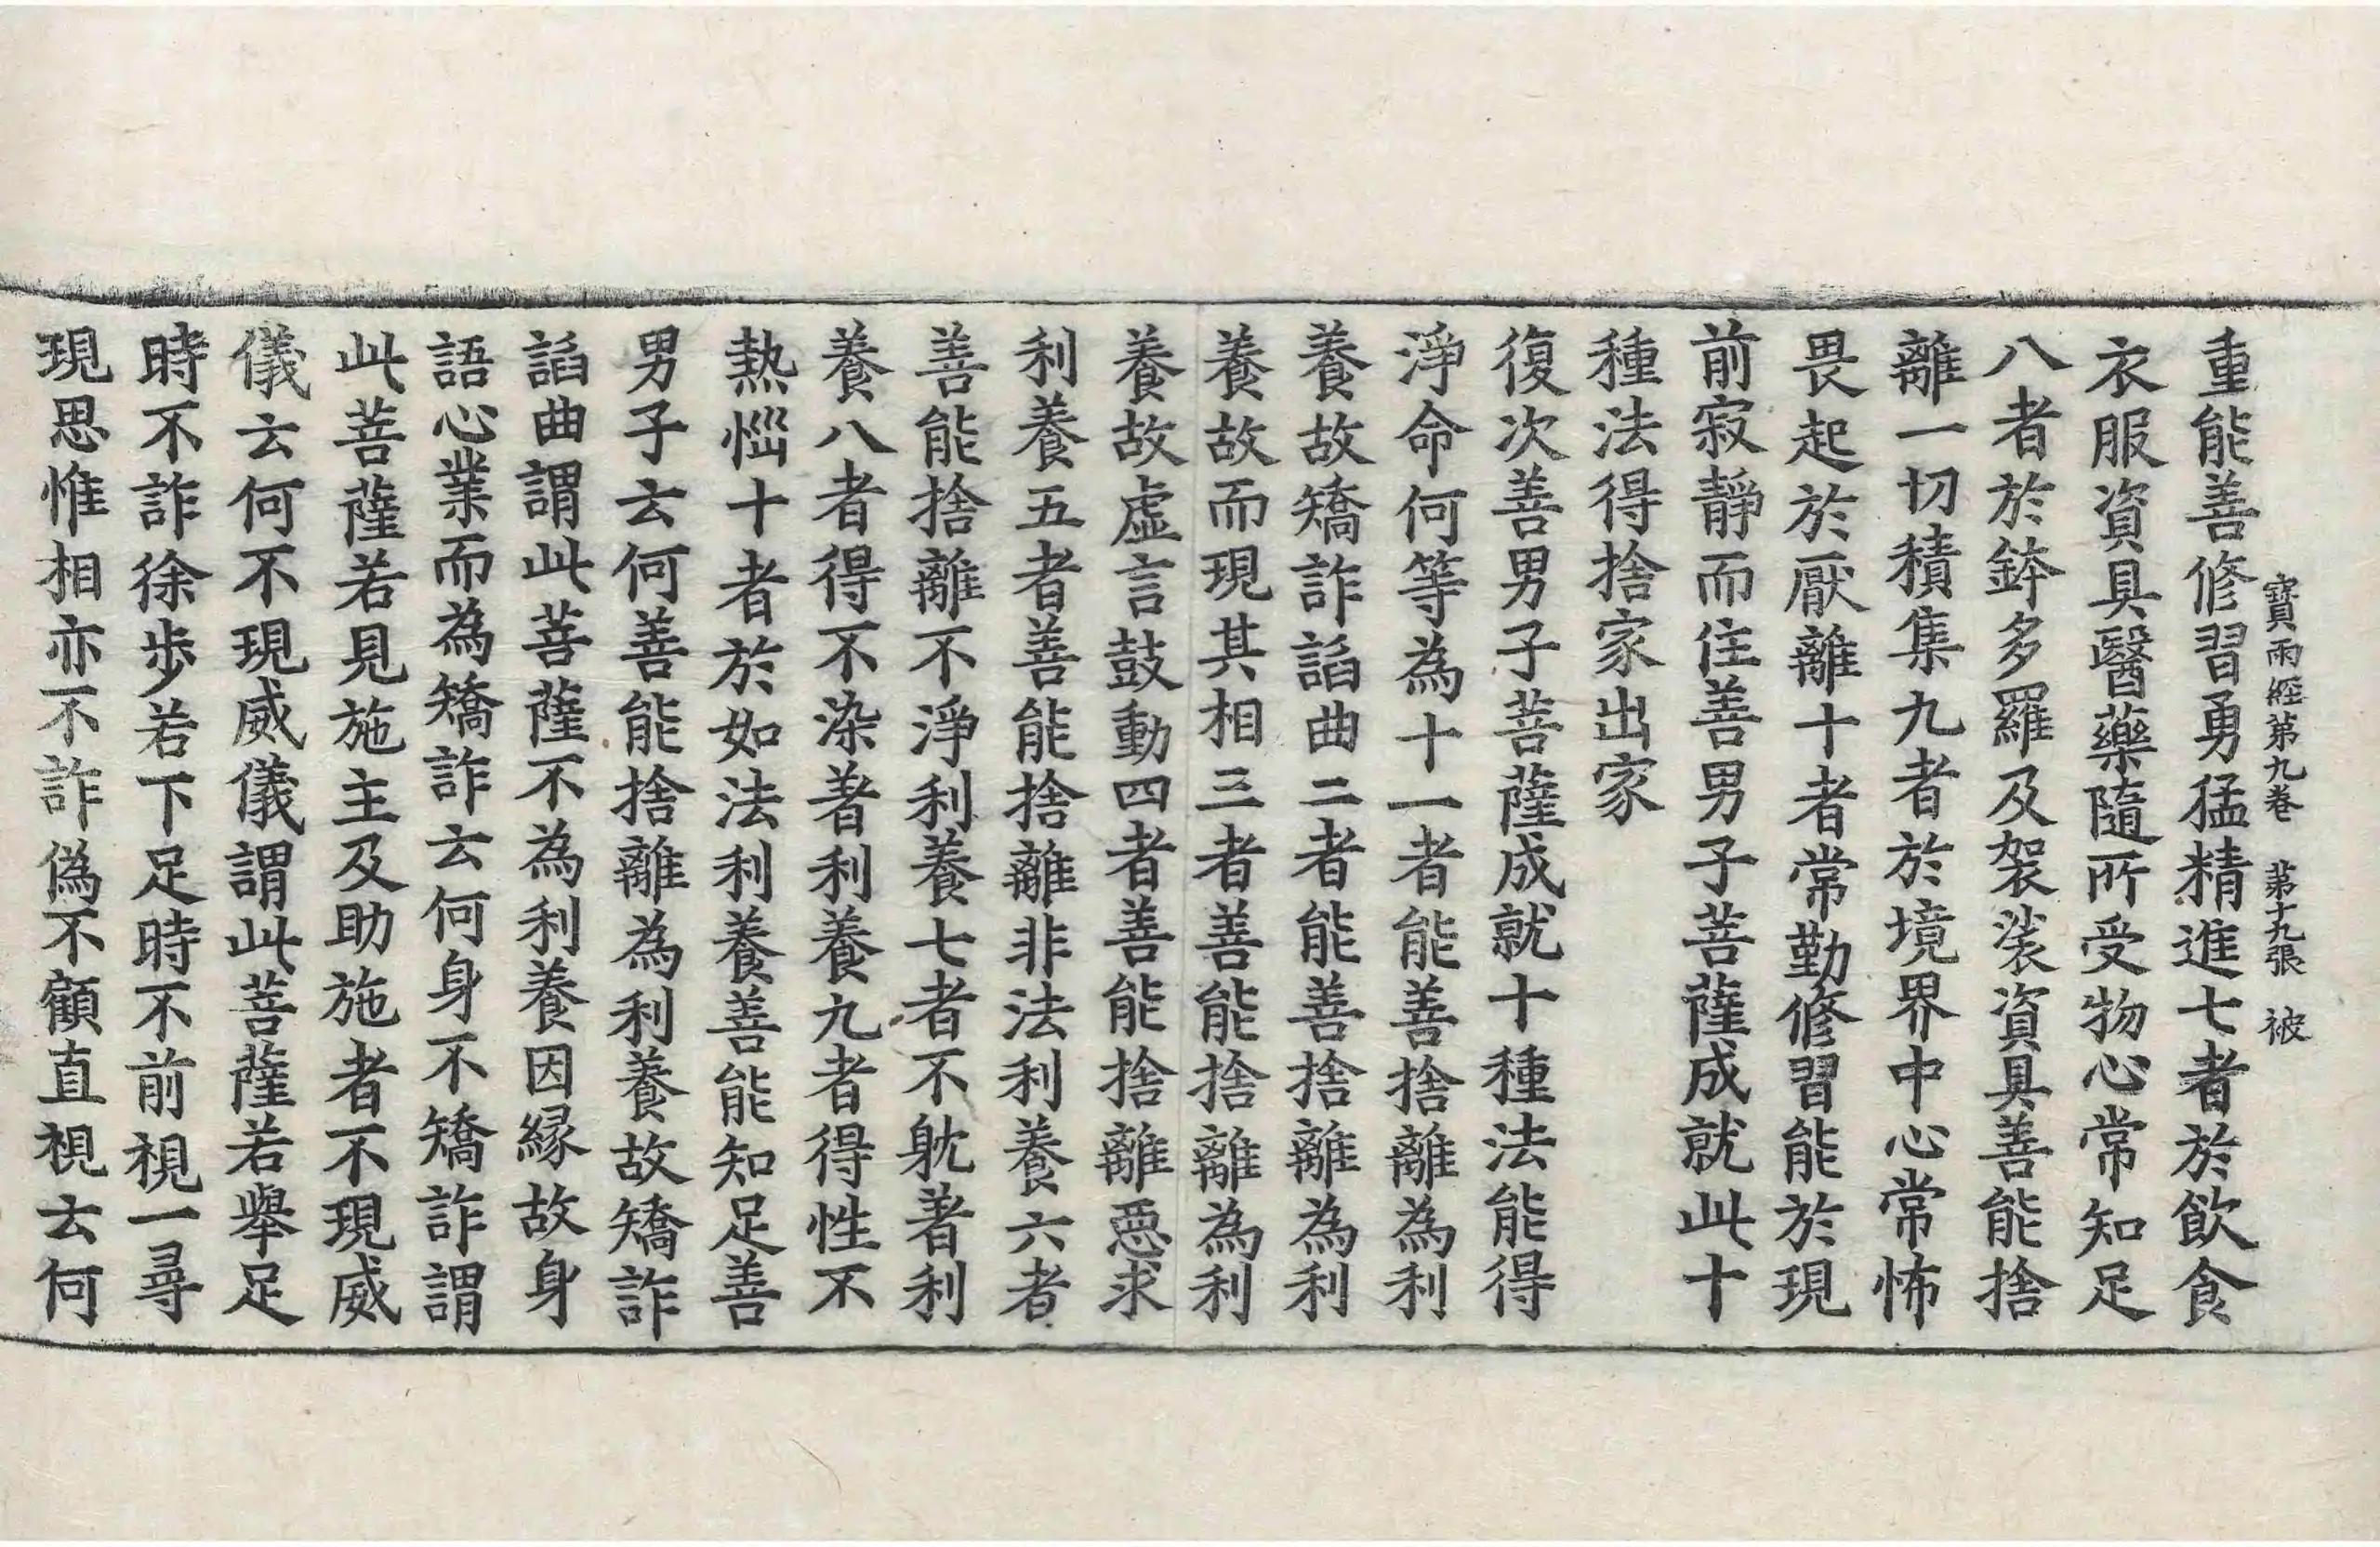 寶雨經第九卷　第十九張　被
重能善修習勇猛精進七者於飲食
衣服資具醫藥隨所受物心常知足
八者於鉢多羅及袈裟資具善能捨
離一切積集九者於境界中心常怖
畏起於厭離十者常勤修習能於現
前寂靜而住善男子菩薩成就此十
種法得捨家出家
復次善男子菩薩成就十種法能得
淨命何等為十一者能善捨離為利
養故矯詐諂曲二者能善捨離為利
養故而現其相三者善能捨離為利
養故虛言鼓動四者善能捨離惡求
利養五者善能捨離非法利養六者
善能捨離不淨利養七者不躭著利
養八者得不染著利養九者得性不
熱惱十者於如法利養善能知足善
男子云何善能捨離為利養故矯詐
諂曲謂此菩薩不為利養因緣故身
語心業而為矯詐云何身不矯詐謂
此菩薩若見施主及助施者不現威
儀云何不現威儀謂此菩薩若舉足
時不詐徐步若下足時不前視一尋
現思惟相亦不詐偽不顧直視云何